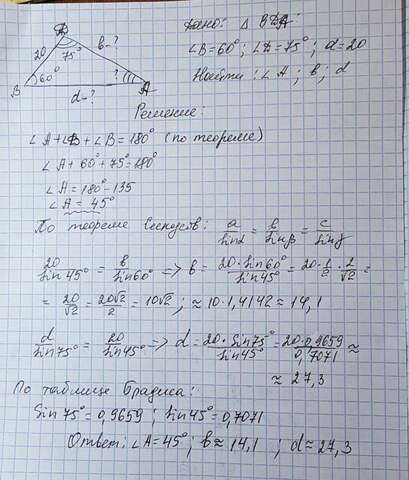 D
Дано: △ BDA
20
75°
b-?
∠B=60°; ∠D=75°; a=20
B
60°
?
A
Найти: ∠A; b; d
d-?
Решение:
∠A+∠D+∠B=180° (по теореме)
∠A+60°+75°=180°
∠A=180°-135
∠A=45°
По теореме Синусов: a/sinα = b/sinβ = c/sinγ
20/sin45° = b/sin60° => b = 20·sin60°/sin45° = 20·1/2·2/√2 =
= 20/√2 = 20√2/2 = 10√2; ≈10·1,4142≈14,1
d/sin75° = 20/sin45° => d = 20·sin75°/sin45° = 20·0,9659/0,7071 ≈
≈27,3
По таблице Брадиса:
Sin75°=0,9659; sin45°=0,7071
Ответ: ∠A=45°; b≈14,1; d≈27,3